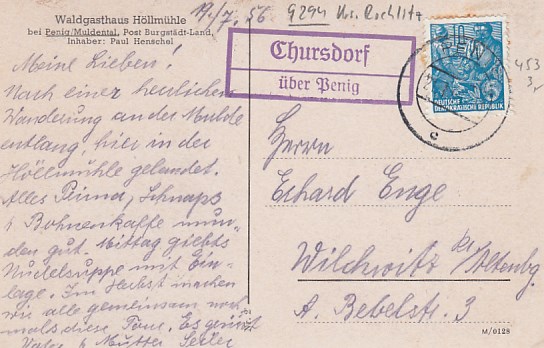 Waldgasthaus Höllmühle
bei Penig/Muldental, Post Burgstädt-Land
Inhaber: Paul Henschel
19./7. 56
9294 Krs. Rochlitz
Chursdorf
über Penig
PENIG
DEUTSCHE
DEMOKRATISCHE REPUBLIK
5
c
453
3,-
Meine Lieben!
Nach einer herrlichen
Wanderung an der Mulde
entlang, hier in der
Höllmühle gelandet.
Alles Prima, Schnaps
u Bohnenkaffe mun-
den gut. Mittag giebts
Nudelsuppe mit Ein-
lage. Im Herbst machen
wir alle gemeinsam noch
mals diese Tour. Es grüsst
Vater u Mutter Seiler
Herrn
Erhard Enge
Wilchwitz bei/Altenbg
A. Bebelstr. 3
M/0128